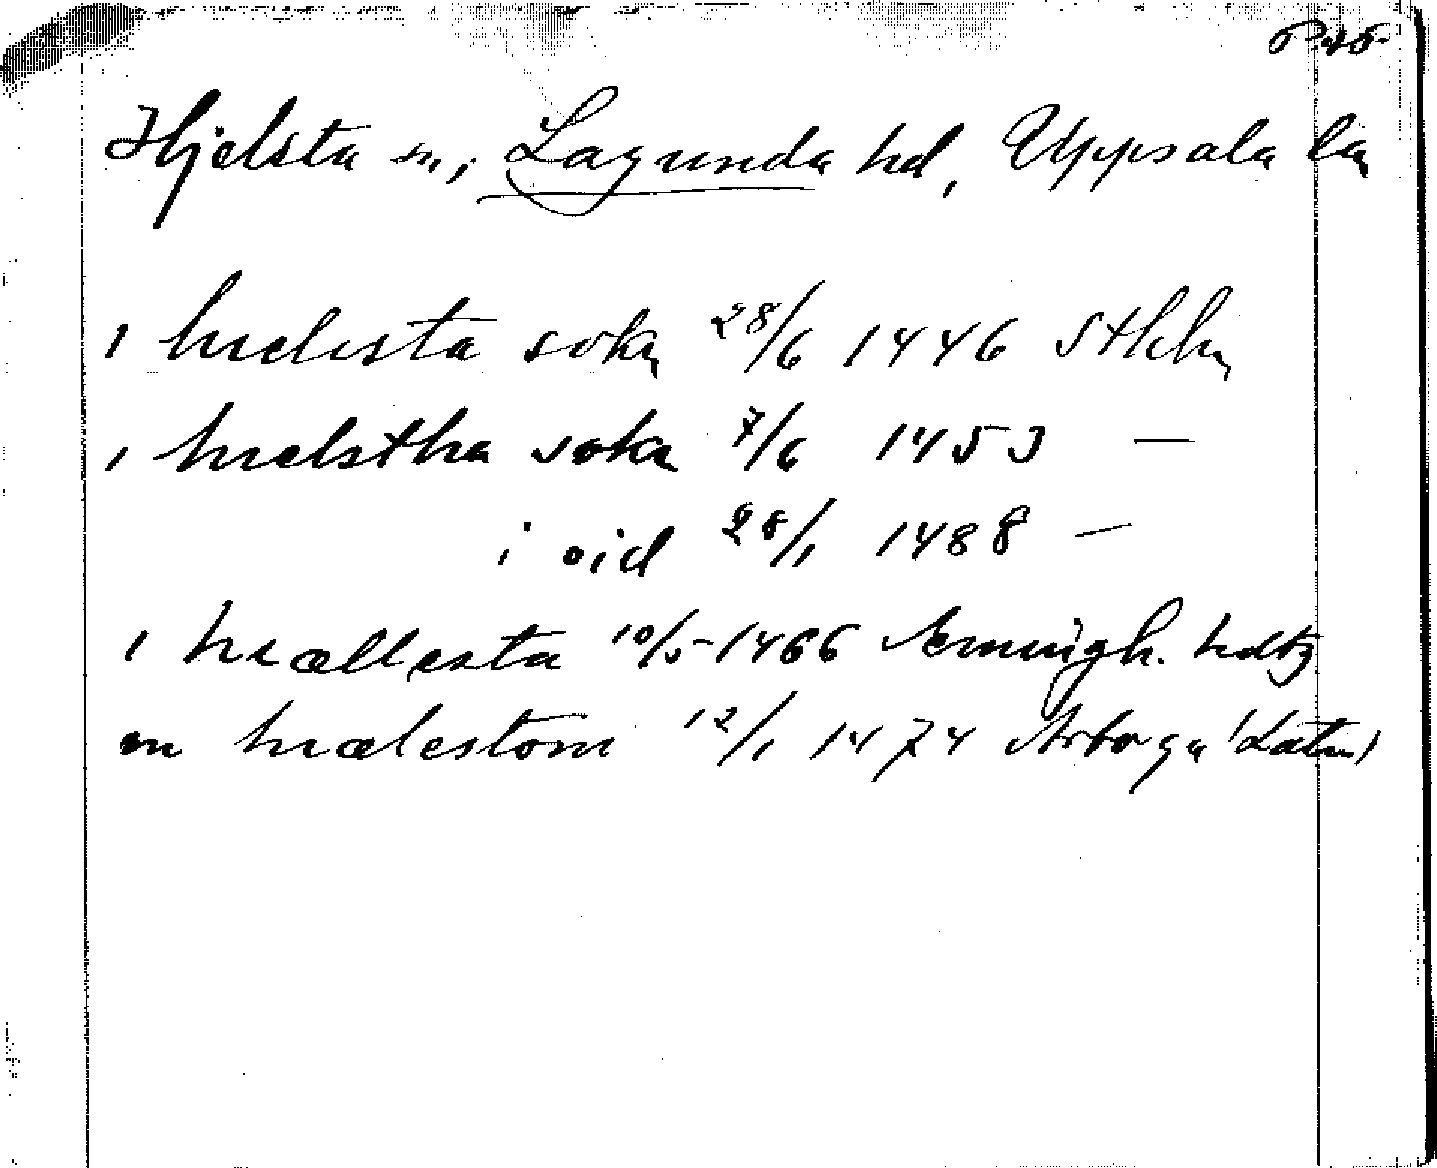 Hjelsta sn, Lagunda hd, Uppsala län
i hielista sokn 28/6 1446 Sthlm
i hielstha sokn 7/6 1453 —
i oid 28/1 1488 —
i hiællesta 10/5 1466 hdtz
en hiælestom 12/1 1474 Arboga (Latin)